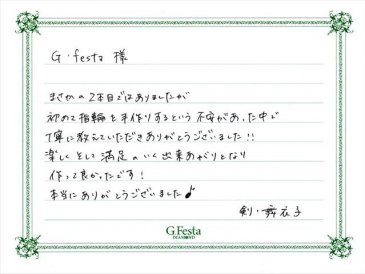 G・festa 様
まさかの2本目ではありましたが
初めて指輪を手作りするという不安があった中で
丁寧に教えていただきありがとうございました!!
楽しくそして満足のいく出来あがりとなり
作って良かったです!
本当にありがとうございました♪
剣・舞衣子
G.Festa
DIAMOND